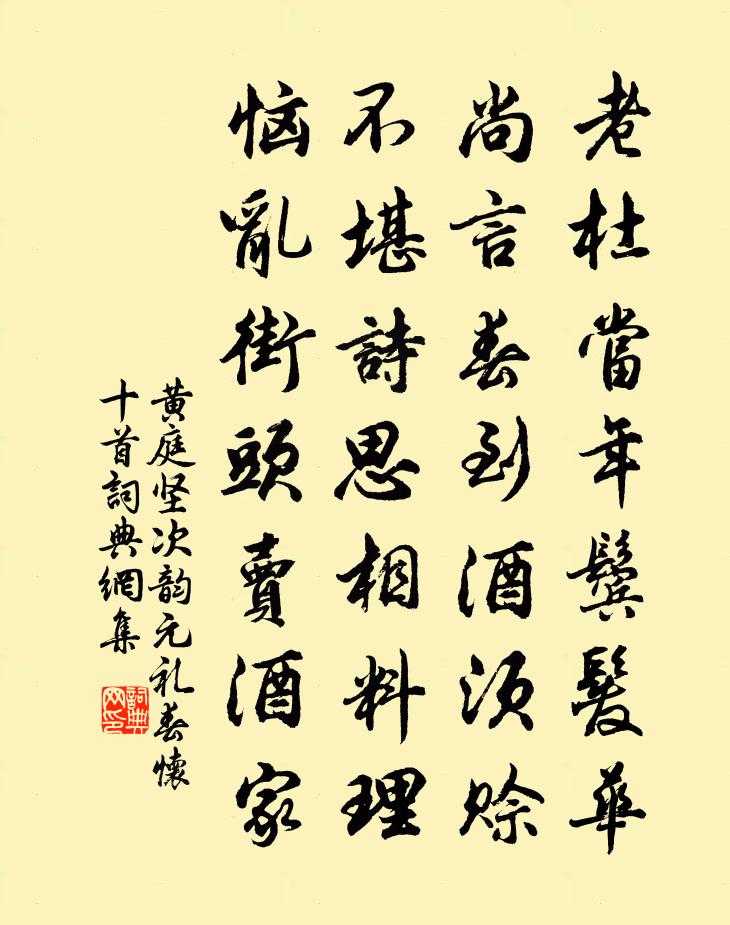 老杜當年鬢髮華
尚言春到酒須賒
不堪詩思相料理
恼亂街頭賣酒家
黄庭坚次韵元礼春懷
十首詞典網集
詞典网印